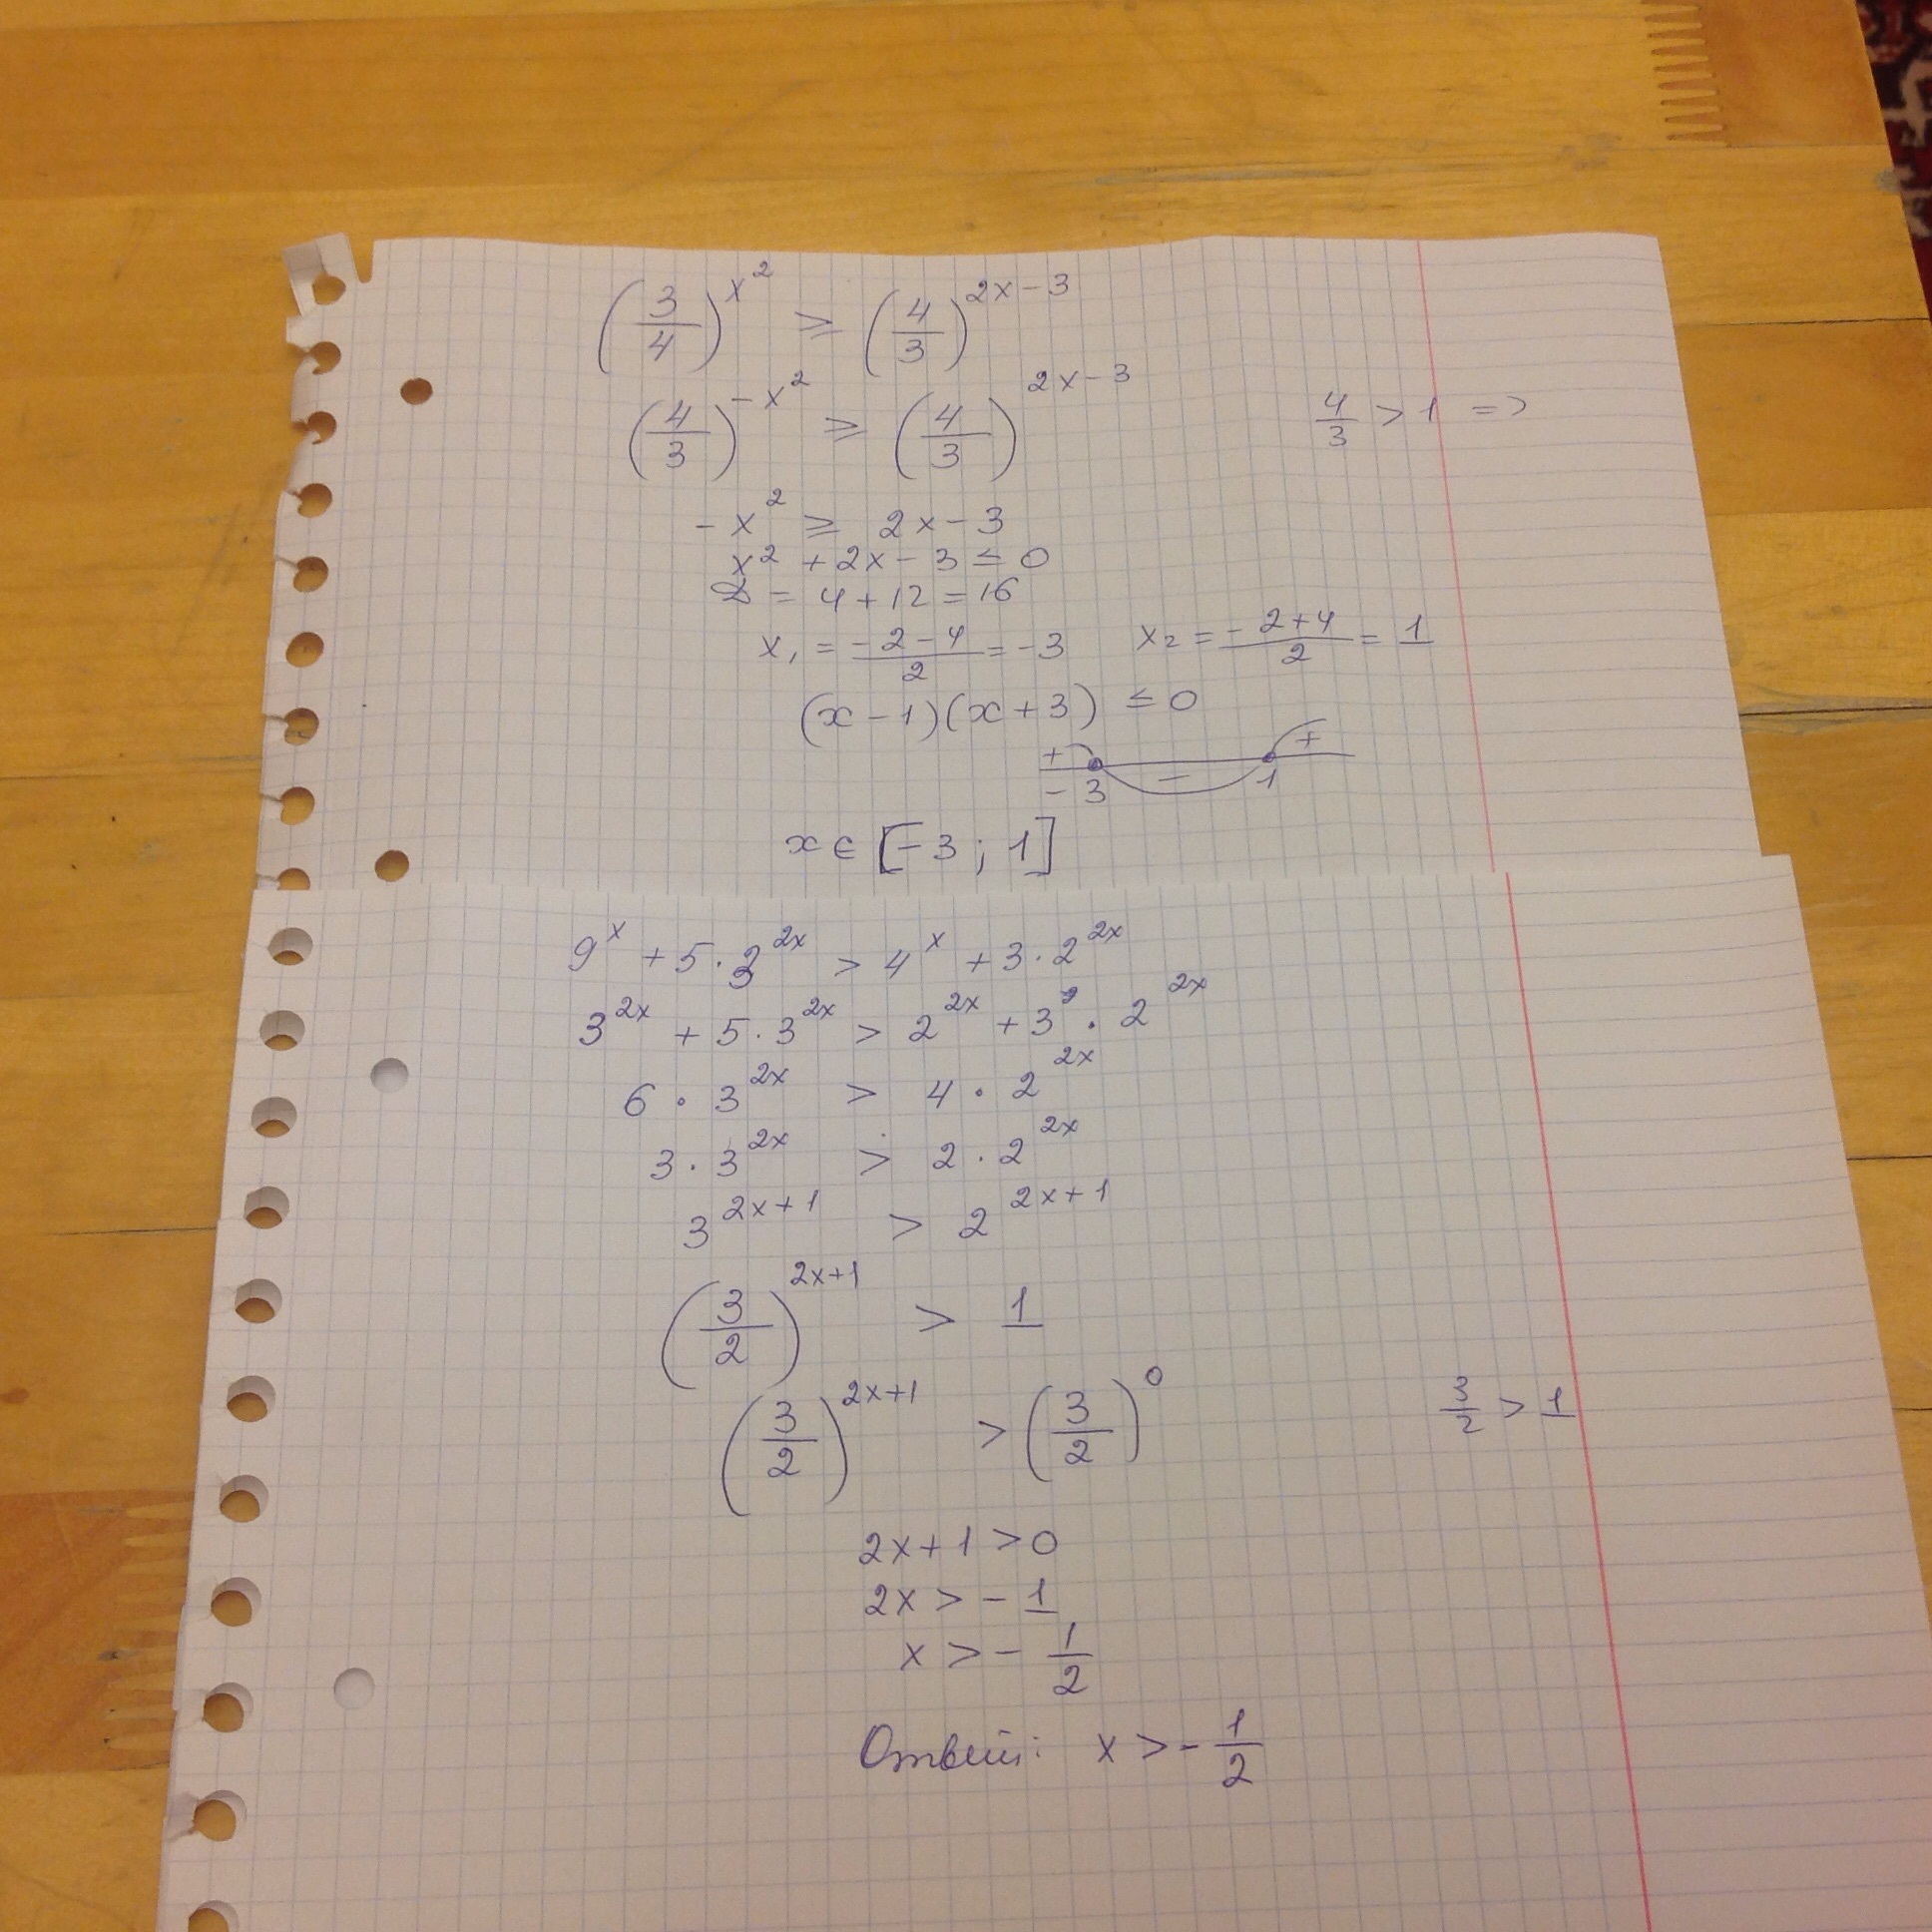 (3/4)^x² ≥ (4/3)^2x-3
(4/3)^-x² ≥ (4/3)^2x-3 4/3 > 1 =>
-x² ≥ 2x-3
x² + 2x - 3 ≤ 0
D = 4 + 12 = 16
x₁ = (-2-4)/2 = -3 x₂ = (-2+4)/2 = 1
(x-1)(x+3) ≤ 0
+ − +
-3 1
x ∈ [-3; 1]
9^x + 5·3^2x > 4^x + 3·2^2x
3^2x + 5·3^2x > 2^2x + 3·2^2x
6·3^2x > 4·2^2x
3·3^2x > 2·2^2x
3^2x+1 > 2^2x+1
(3/2)^2x+1 > 1
(3/2)^2x+1 > (3/2)^0 3/2 > 1
2x+1 > 0
2x > -1
x > -1/2
Ответ: x > -1/2